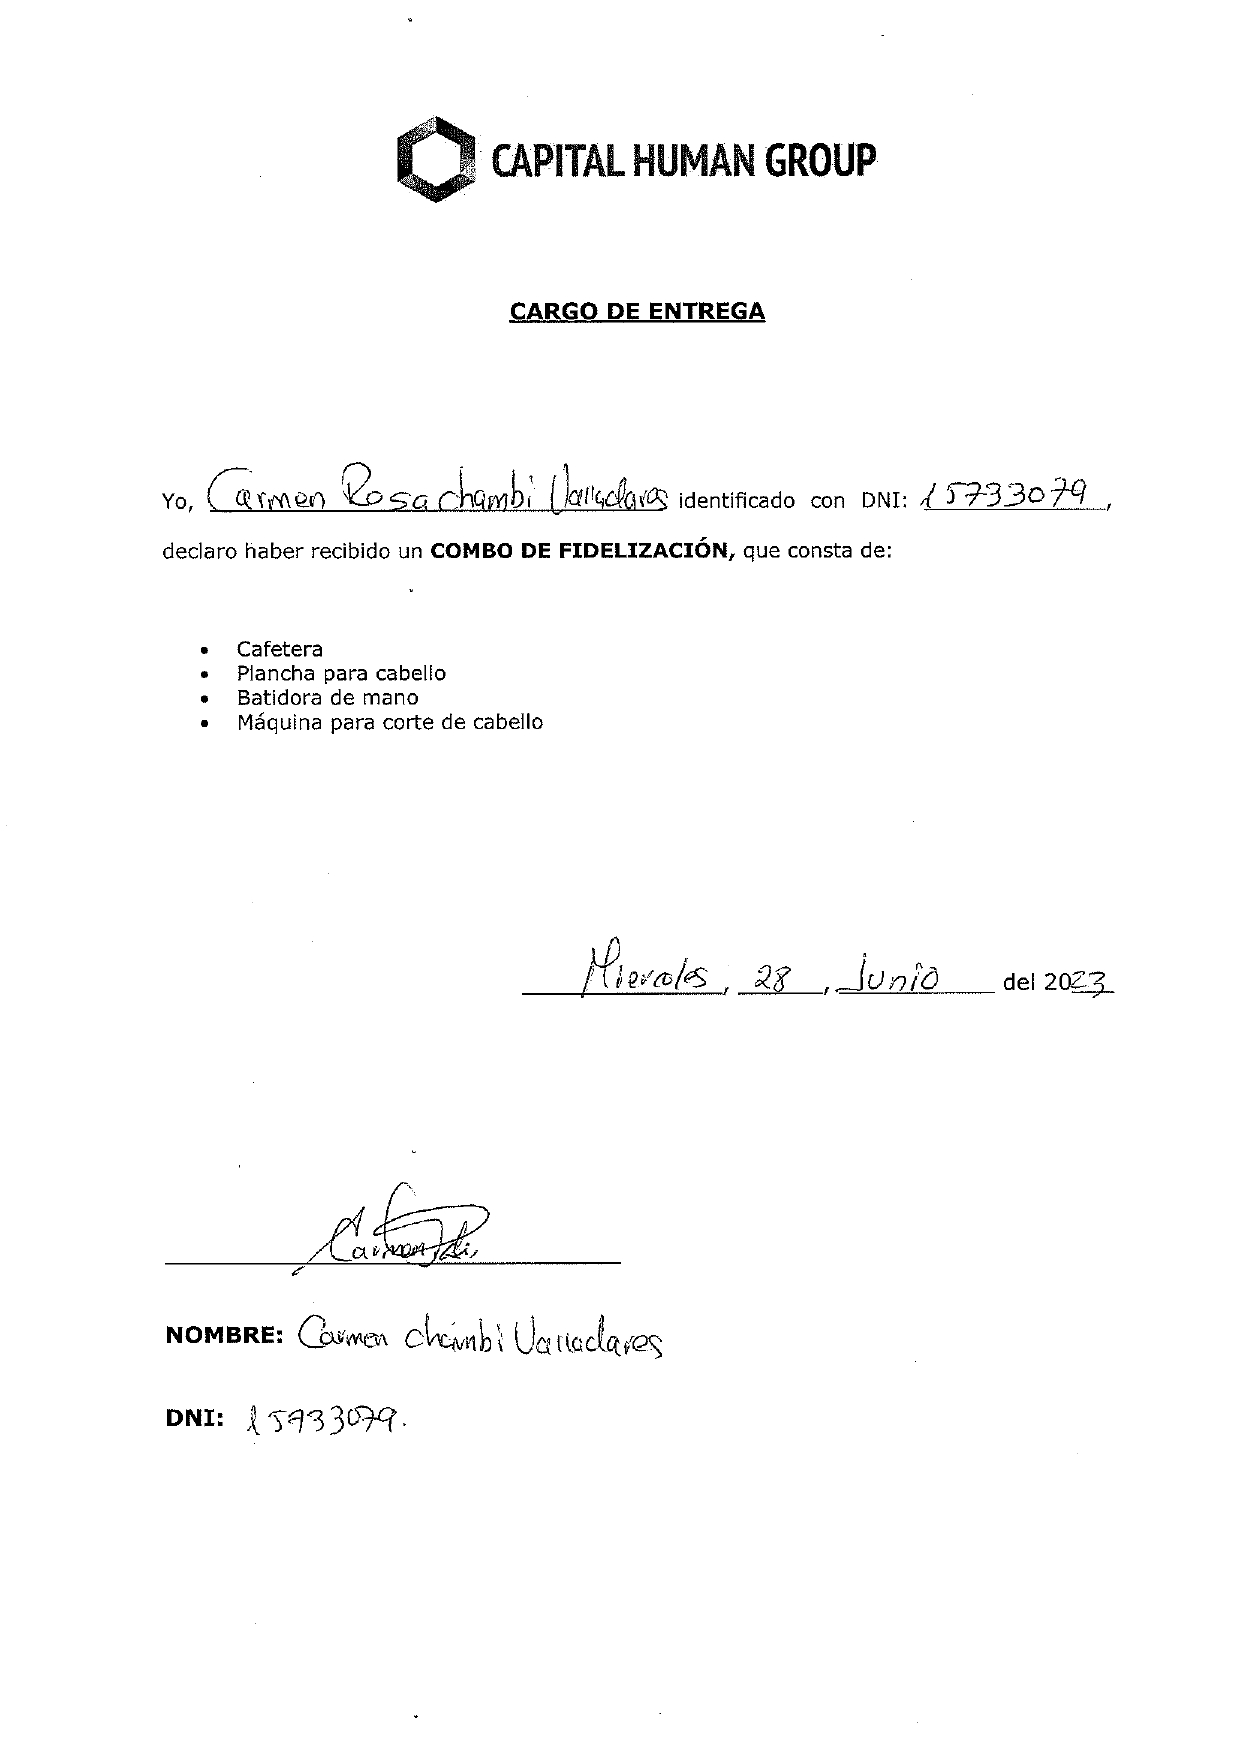 CAPITAL HUMAN GROUP
CARGO DE ENTREGA
Yo, Carmen Rosa chambi Valladares identificado con DNI: 15733079,
declaro haber recibido un COMBO DE FIDELIZACIÓN, que consta de:
• Cafetera
• Plancha para cabello
• Batidora de mano
• Máquina para corte de cabello
Miercoles, 28, Junio del 2023
Carmen
NOMBRE: Carmen chambi Valladares
DNI: 15733079.